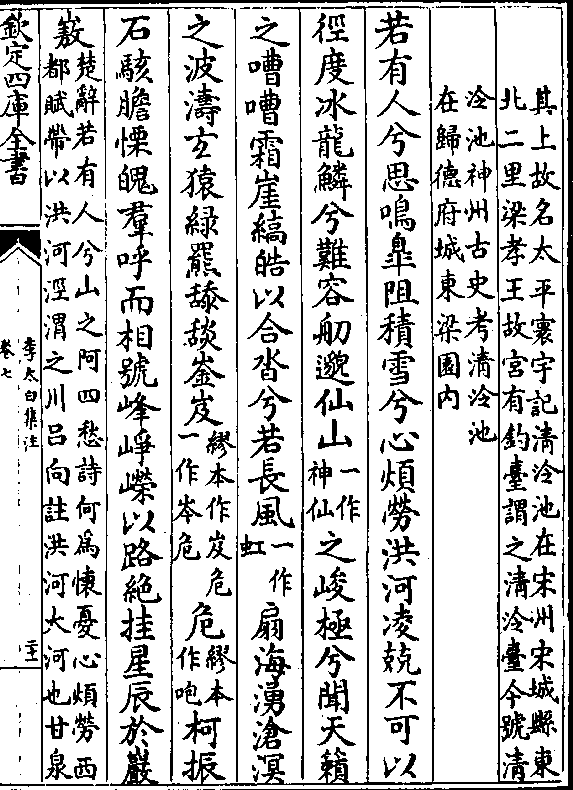 其上故名太平寰宇記清泠池在宋州宋城縣東
北二里梁孝王故宮有釣臺謂之清泠臺今號清
泠池神州古史考清泠池
在歸德府城東梁園内
若有人兮思鳴臯阻積雪兮心煩勞洪河凌兢不可以
徑度冰龍鱗兮難容舠邈仙山一作神仙之峻極兮聞天籟
之嘈嘈霜崖縞皓以合沓兮若長風一作虹扇海湧滄溟
之波濤玄猿緑羆舔舕崟岌繆本作岌危一作岑危危繆本作咆柯振
石駭膽慄魄羣呼而相號峰崢嶸以路絶挂星辰於巖
嶅楚辭若有人兮山之阿四愁詩何為懐憂心煩勞西
都賦帶以洪河涇渭之川吕向註洪河大河也甘泉
欽定四庫全書
李太白集注
卷七